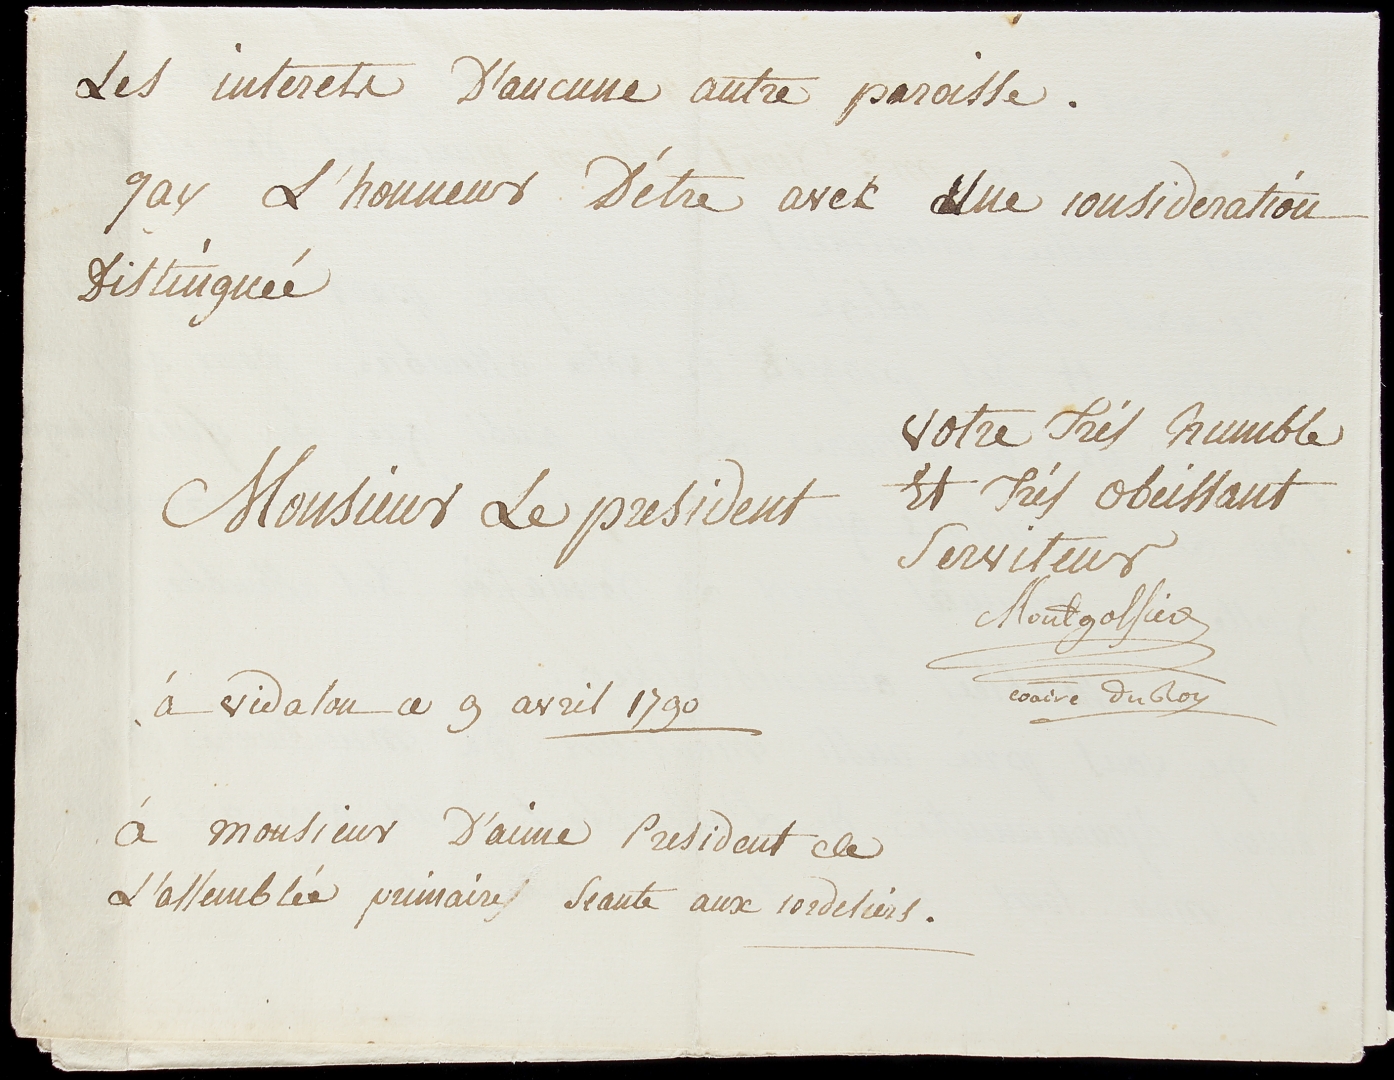 Les interets D'aucune autre paroisse.
jay L'honneur D'étre avec Une consideration
Distinguéé
votre trés humble
Monsieur Le president
Et trés obeissant
serviteur
Montgolfier
coaire du Roy
á vidalon ce 9 avril 1790
á monsieur D'aime President de
L'assembléé primaire seante aux cordeliers.